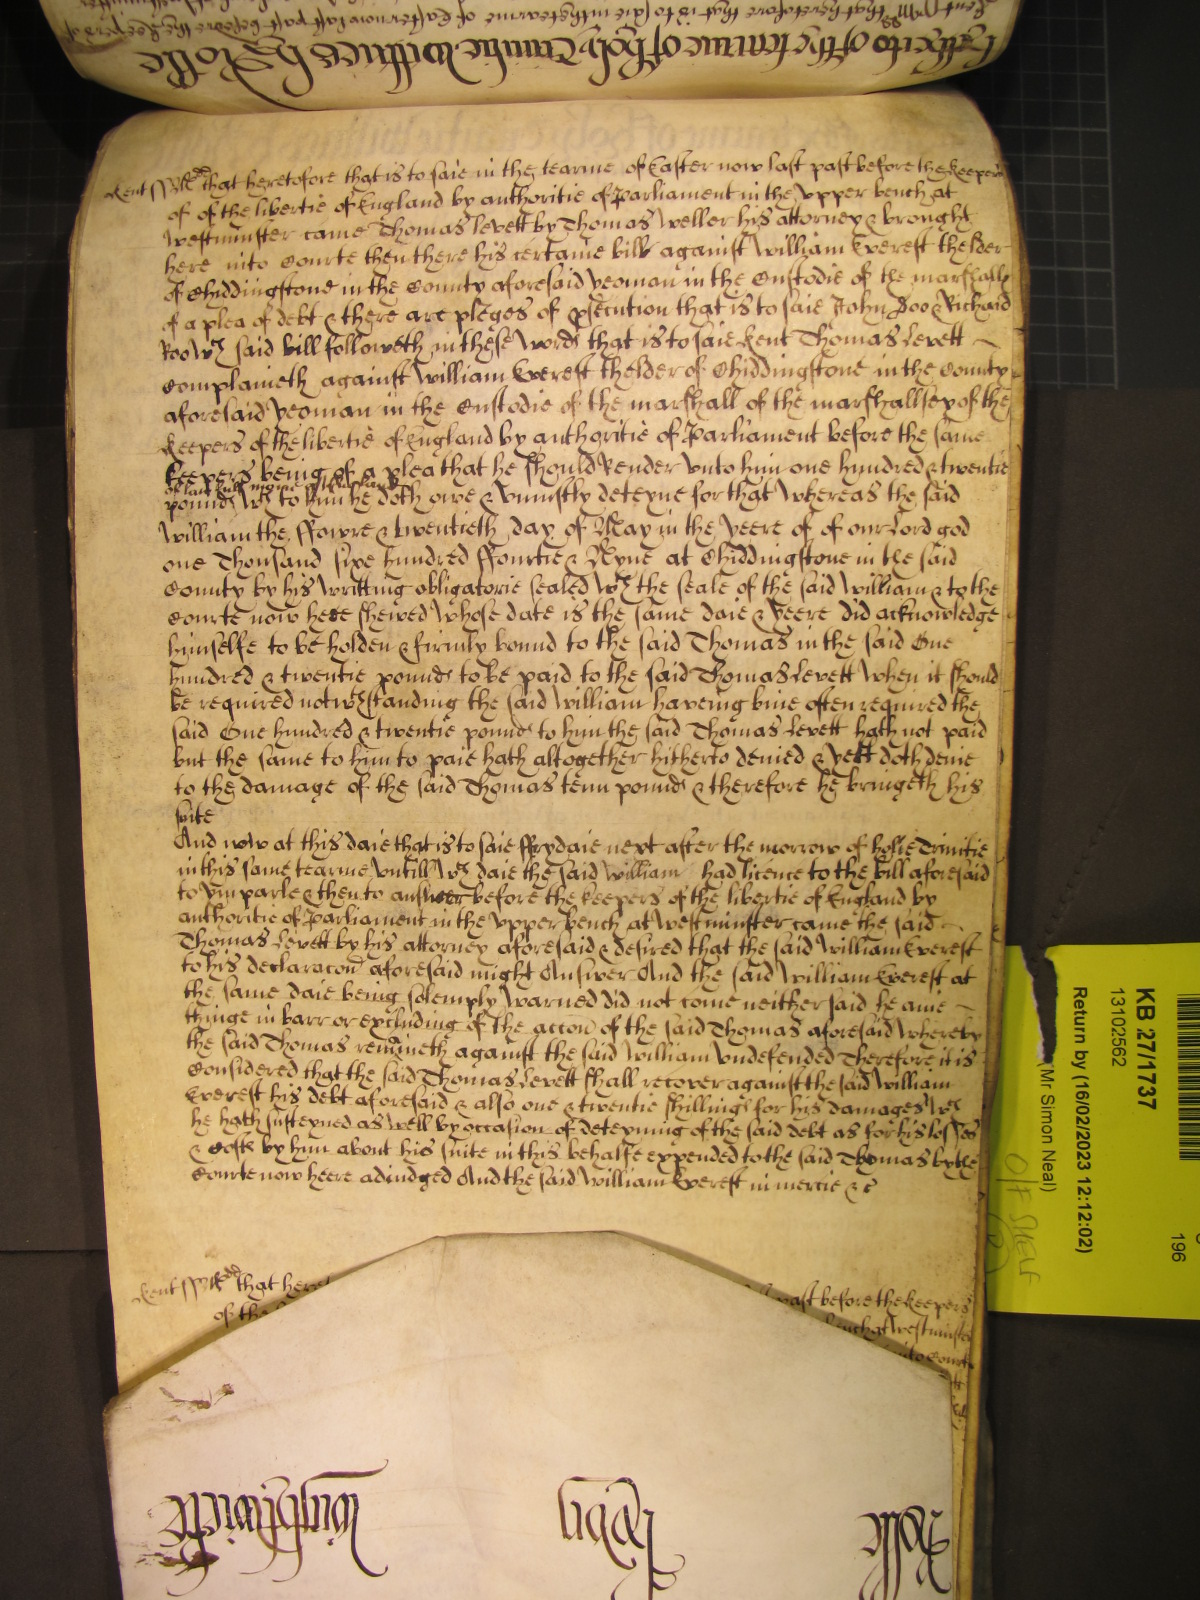 Kent ss Mdd that heretofore that is to saie in the tearme of Easter now last past before the keepers
of of the libertie of England by authoritie of Parliament in the Vpper bench at
Westminster came Thomas Levett by Thomas Weller his attorney & brought
here into Courte then there his certaine bill against William Everest thelder
of Chiddingstone in the County aforesaid yeoman in the Custodie of the marshall
of a plea of debt & there are pleges of prosecution that is to saie John Doo & Richard
Roo wch said bill followeth in these words that is to saie Kent Thomas Levett
Complaineth against William Everest thelder of Chiddingstone in the County
aforesaid yeoman in the Custodie of the marshall of the marshallsey of the
keepers of the libertie of England by authoritie of Parliament before the same
keepers being of a plea that he should Render vnto him one hundred & twentie
of lawfull money of England
pounds wch to him he doth owe & vniustly deteyne for that whereas the said
William the ffowre & twentieth day of May in the yeere of of our Lord god
one Thousand sixe hundred ffourtie & Nyne at Chiddingstone in the said
County by his writting obligatorie sealed wth the seale of the said William & to the
Courte now here shewed whose date is the same daie & yeere did acknowledge
himselfe to be holden & firmly bound to the said Thomas in the said One
hundred & twentie pounds to be paid to the said Thomas Levett when it should
be required notwthstanding the said William haveing bine often required the
said One hundred & twentie pounds to him the said Thomas Levett hath not paid
but the same to him to paie hath altogether hitherto denied & yett doth denie
to the damage of the said Thomas tenn pounds & therefore he bringeth his
suite
And now at this daie that is to saie ffrydaie next after the morrow of holie Trinitie
in this same tearme vntill wch daie the said William had licence to the bill aforesaid
to ymparle & then to answer before the keepers of the libertie of England by
authoritie of Parliament in the Vpper bench at Westminster came the said
Thomas Levett by his attorney aforesaid & desired that the said William Everest
to his declaracon aforesaid might Answer And the said William Everest at
the same daie being solemply warned did not come neither said he anie
thinge in barr or excluding of the accon of the said Thomas aforesaid whereby
the said Thomas remaineth against the said William vndefended Therefore it is
Considered that the said Thomas Levett shall recover against the said William
Everest his debt aforesaid & also one & twentie shillings for his damages wch
he hath susteyned as well by occasion of deteyning of the said debt as for his losses
& Costs by him about his suite in this behalfe expended to the said Thomas by the
Courte now heere adiudged And the said William Everest in mercie &c
Kent ss Mdd that here past before the keepers
of the bench at Westminster
into Courte
KB 27/1737
13102562
Return by (16/02/2023 12:12:02)
(Mr Simon Neal)
196
O/F SHELF
Rolle